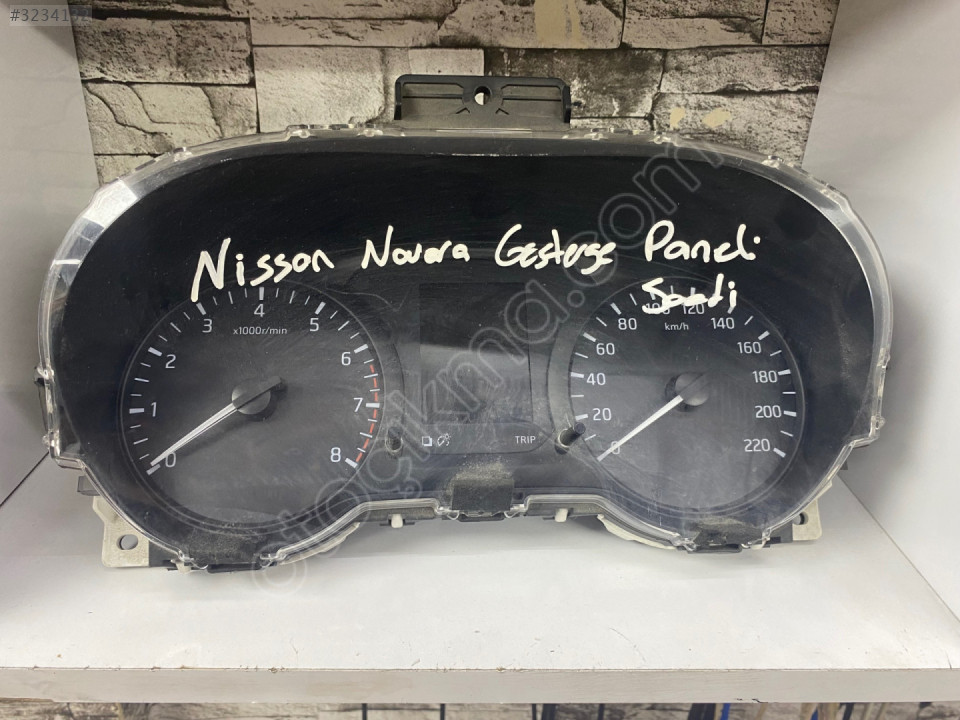 #3234132
Nisson Navara Gesterge Paneli
Saati
4
3
5
x1000r/min
2
6
1
7
0
8
TRIP
100
120
80
140
km/h
60
160
40
180
20
200
0
220
otocikma.com